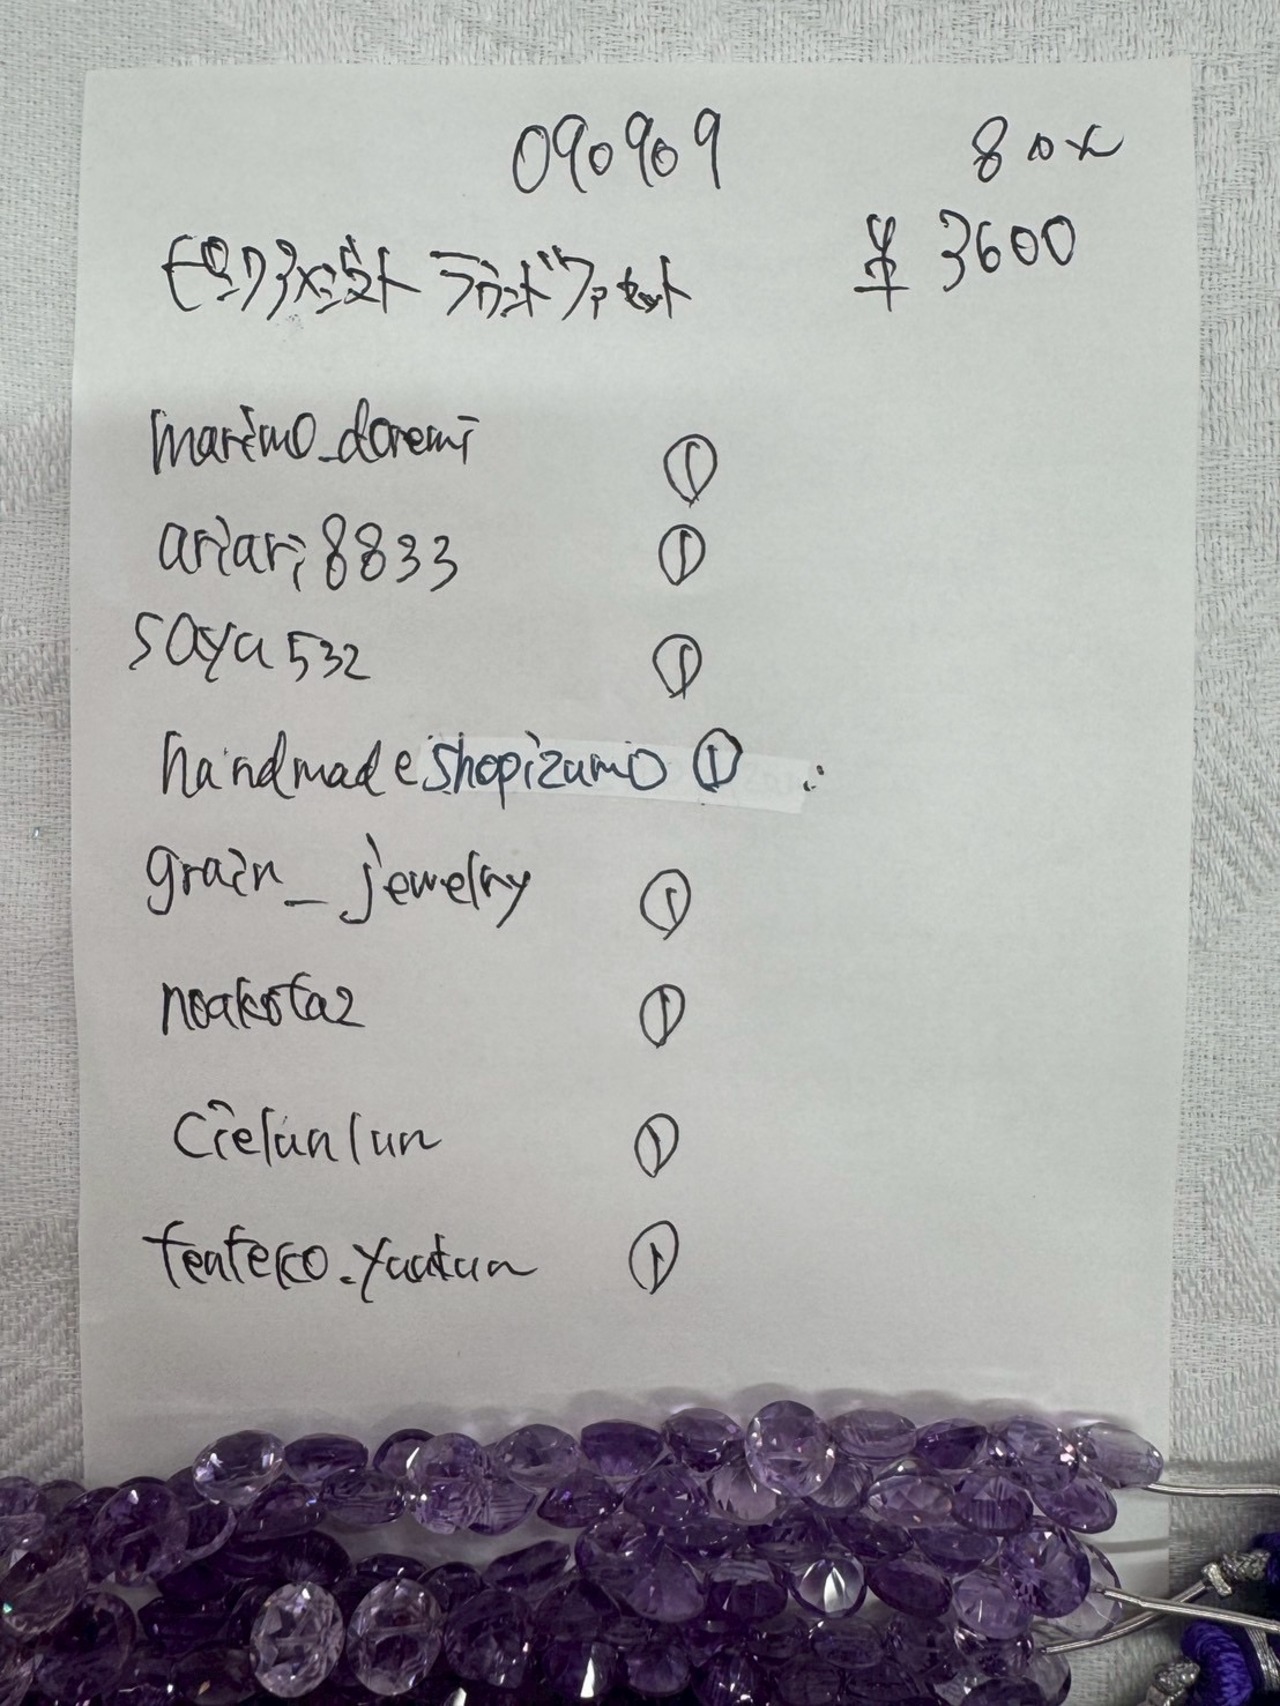 090909
ピンクアメジスト ラウンドファセット
¥ 3600
marimo_doremi ①
ariari8833 ①
saya532 ①
handmadeshopizumo ①
grain_jewelry ①
noakota2 ①
cielunlun ①
①